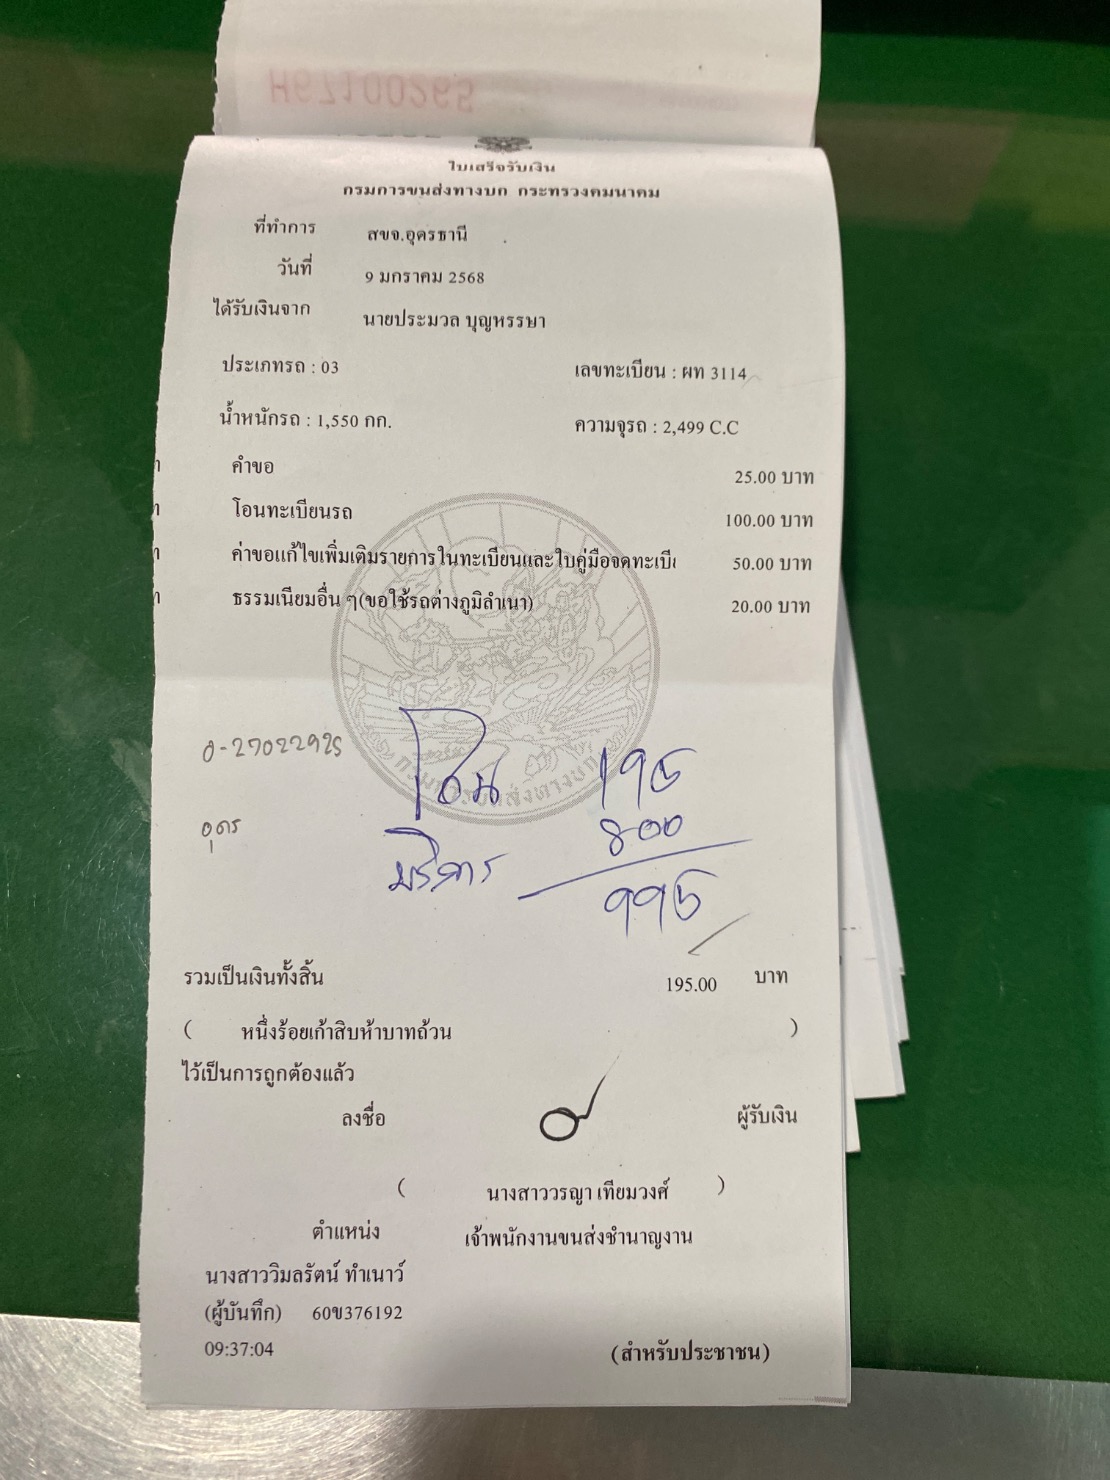 ใบเสร็จรับเงิน
กรมการขนส่งทางบก กระทรวงคมนาคม
ที่ทำการ สขจ.อุดรธานี
วันที่ 9 มกราคม 2568
ได้รับเงินจาก นายประมวล บุญหรรษา
ประเภทรถ : 03 เลขทะเบียน : ผท 3114
น้ำหนักรถ : 1,550 กก. ความจุรถ : 2,499 C.C
คำขอ 25.00 บาท
โอนทะเบียนรถ 100.00 บาท
ค่าขอแก้ไขเพิ่มเติมรายการในทะเบียนและใบคู่มือจดทะเบี 50.00 บาท
ธรรมเนียมอื่น ๆ(ขอใช้รถต่างภูมิลำเนา) 20.00 บาท
โอน 195
บริการ 800
995
อุดร
กรมการขนส่งทางบก
รวมเป็นเงินทั้งสิ้น 195.00 บาท
( หนึ่งร้อยเก้าสิบห้าบาทถ้วน )
ไว้เป็นการถูกต้องแล้ว
ลงชื่อ ผู้รับเงิน
( นางสาววรญา เทียมวงศ์ )
ตำแหน่ง เจ้าพนักงานขนส่งชำนาญงาน
นางสาววิมลรัตน์ ทำเนาว์
(ผู้บันทึก) 60ข376192
09:37:04 (สำหรับประชาชน)